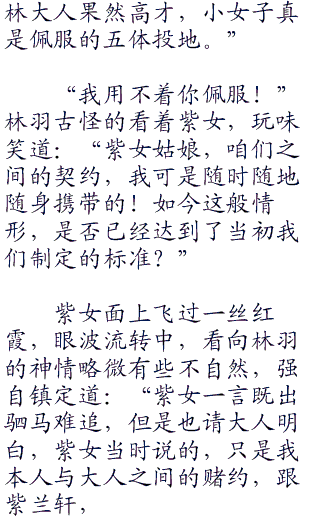 林大人果然高才，小女子真
是佩服的五体投地。”
“我用不着你佩服！”
林羽古怪的看着紫女，玩味
笑道：“紫女姑娘，咱们之
间的契约，我可是随时随地
随身携带的！如今这般情
形，是否已经达到了当初我
们制定的标准？”
紫女面上飞过一丝红
霞，眼波流转中，看向林羽
的神情略微有些不自然，强
自镇定道：“紫女一言既出
驷马难追，但是也请大人明
白，紫女当时说的，只是我
本人与大人之间的赌约，跟
紫兰轩，